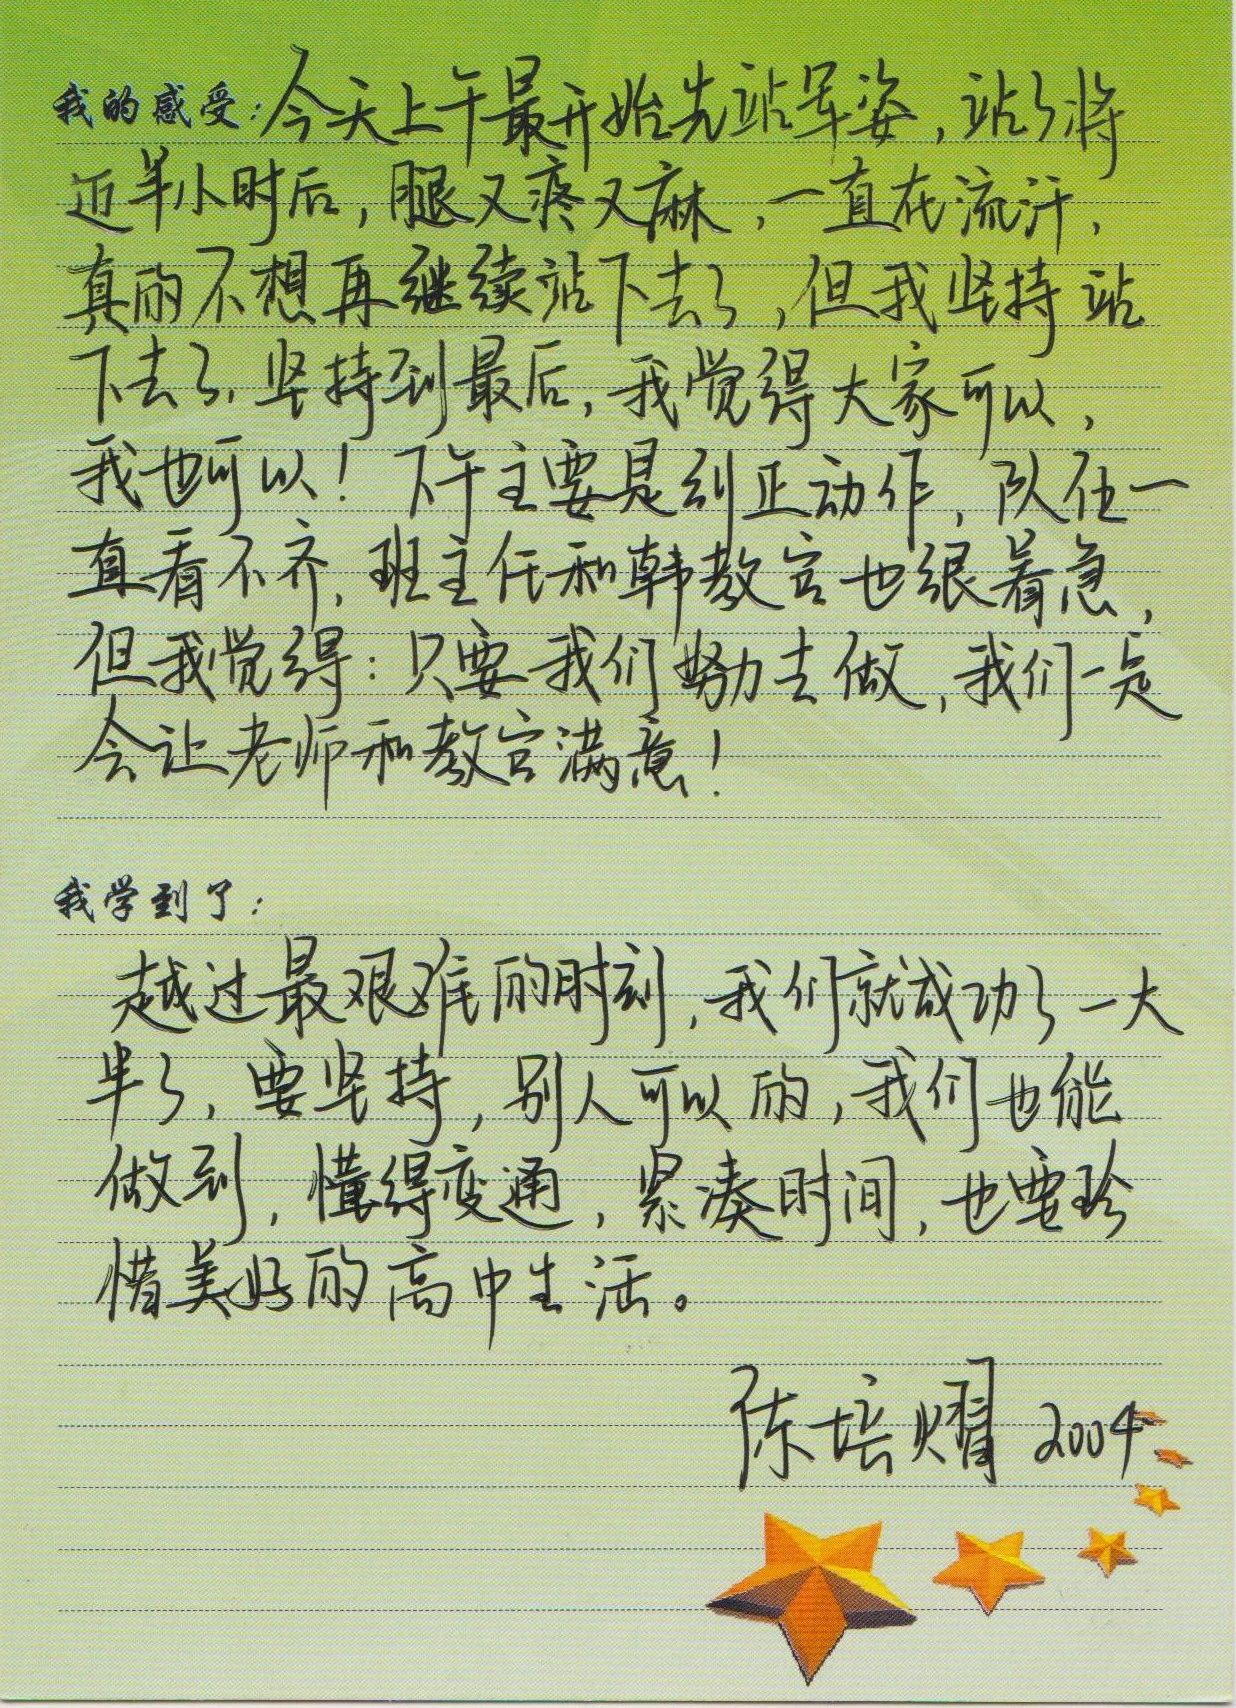 我的感受：今天上午最开始先站军姿，站了将
近半小时后，腿又疼又麻，一直在流汗，
真的不想再继续站下去了，但我坚持站
下去了，坚持到最后，我觉得大家可以，
我也可以！下午主要是纠正动作，队伍一
直看不齐，班主任和韩教官也很着急，
但我觉得：只要我们努力去做，我们一定
会让老师和教官满意！
我学到了：
越过最艰难的时刻，我们就成功了一大
半了，要坚持，别人可以的，我们也能
做到，懂得变通，紧凑时间，也要珍
惜美好的高中生活。
陈培熠 2004